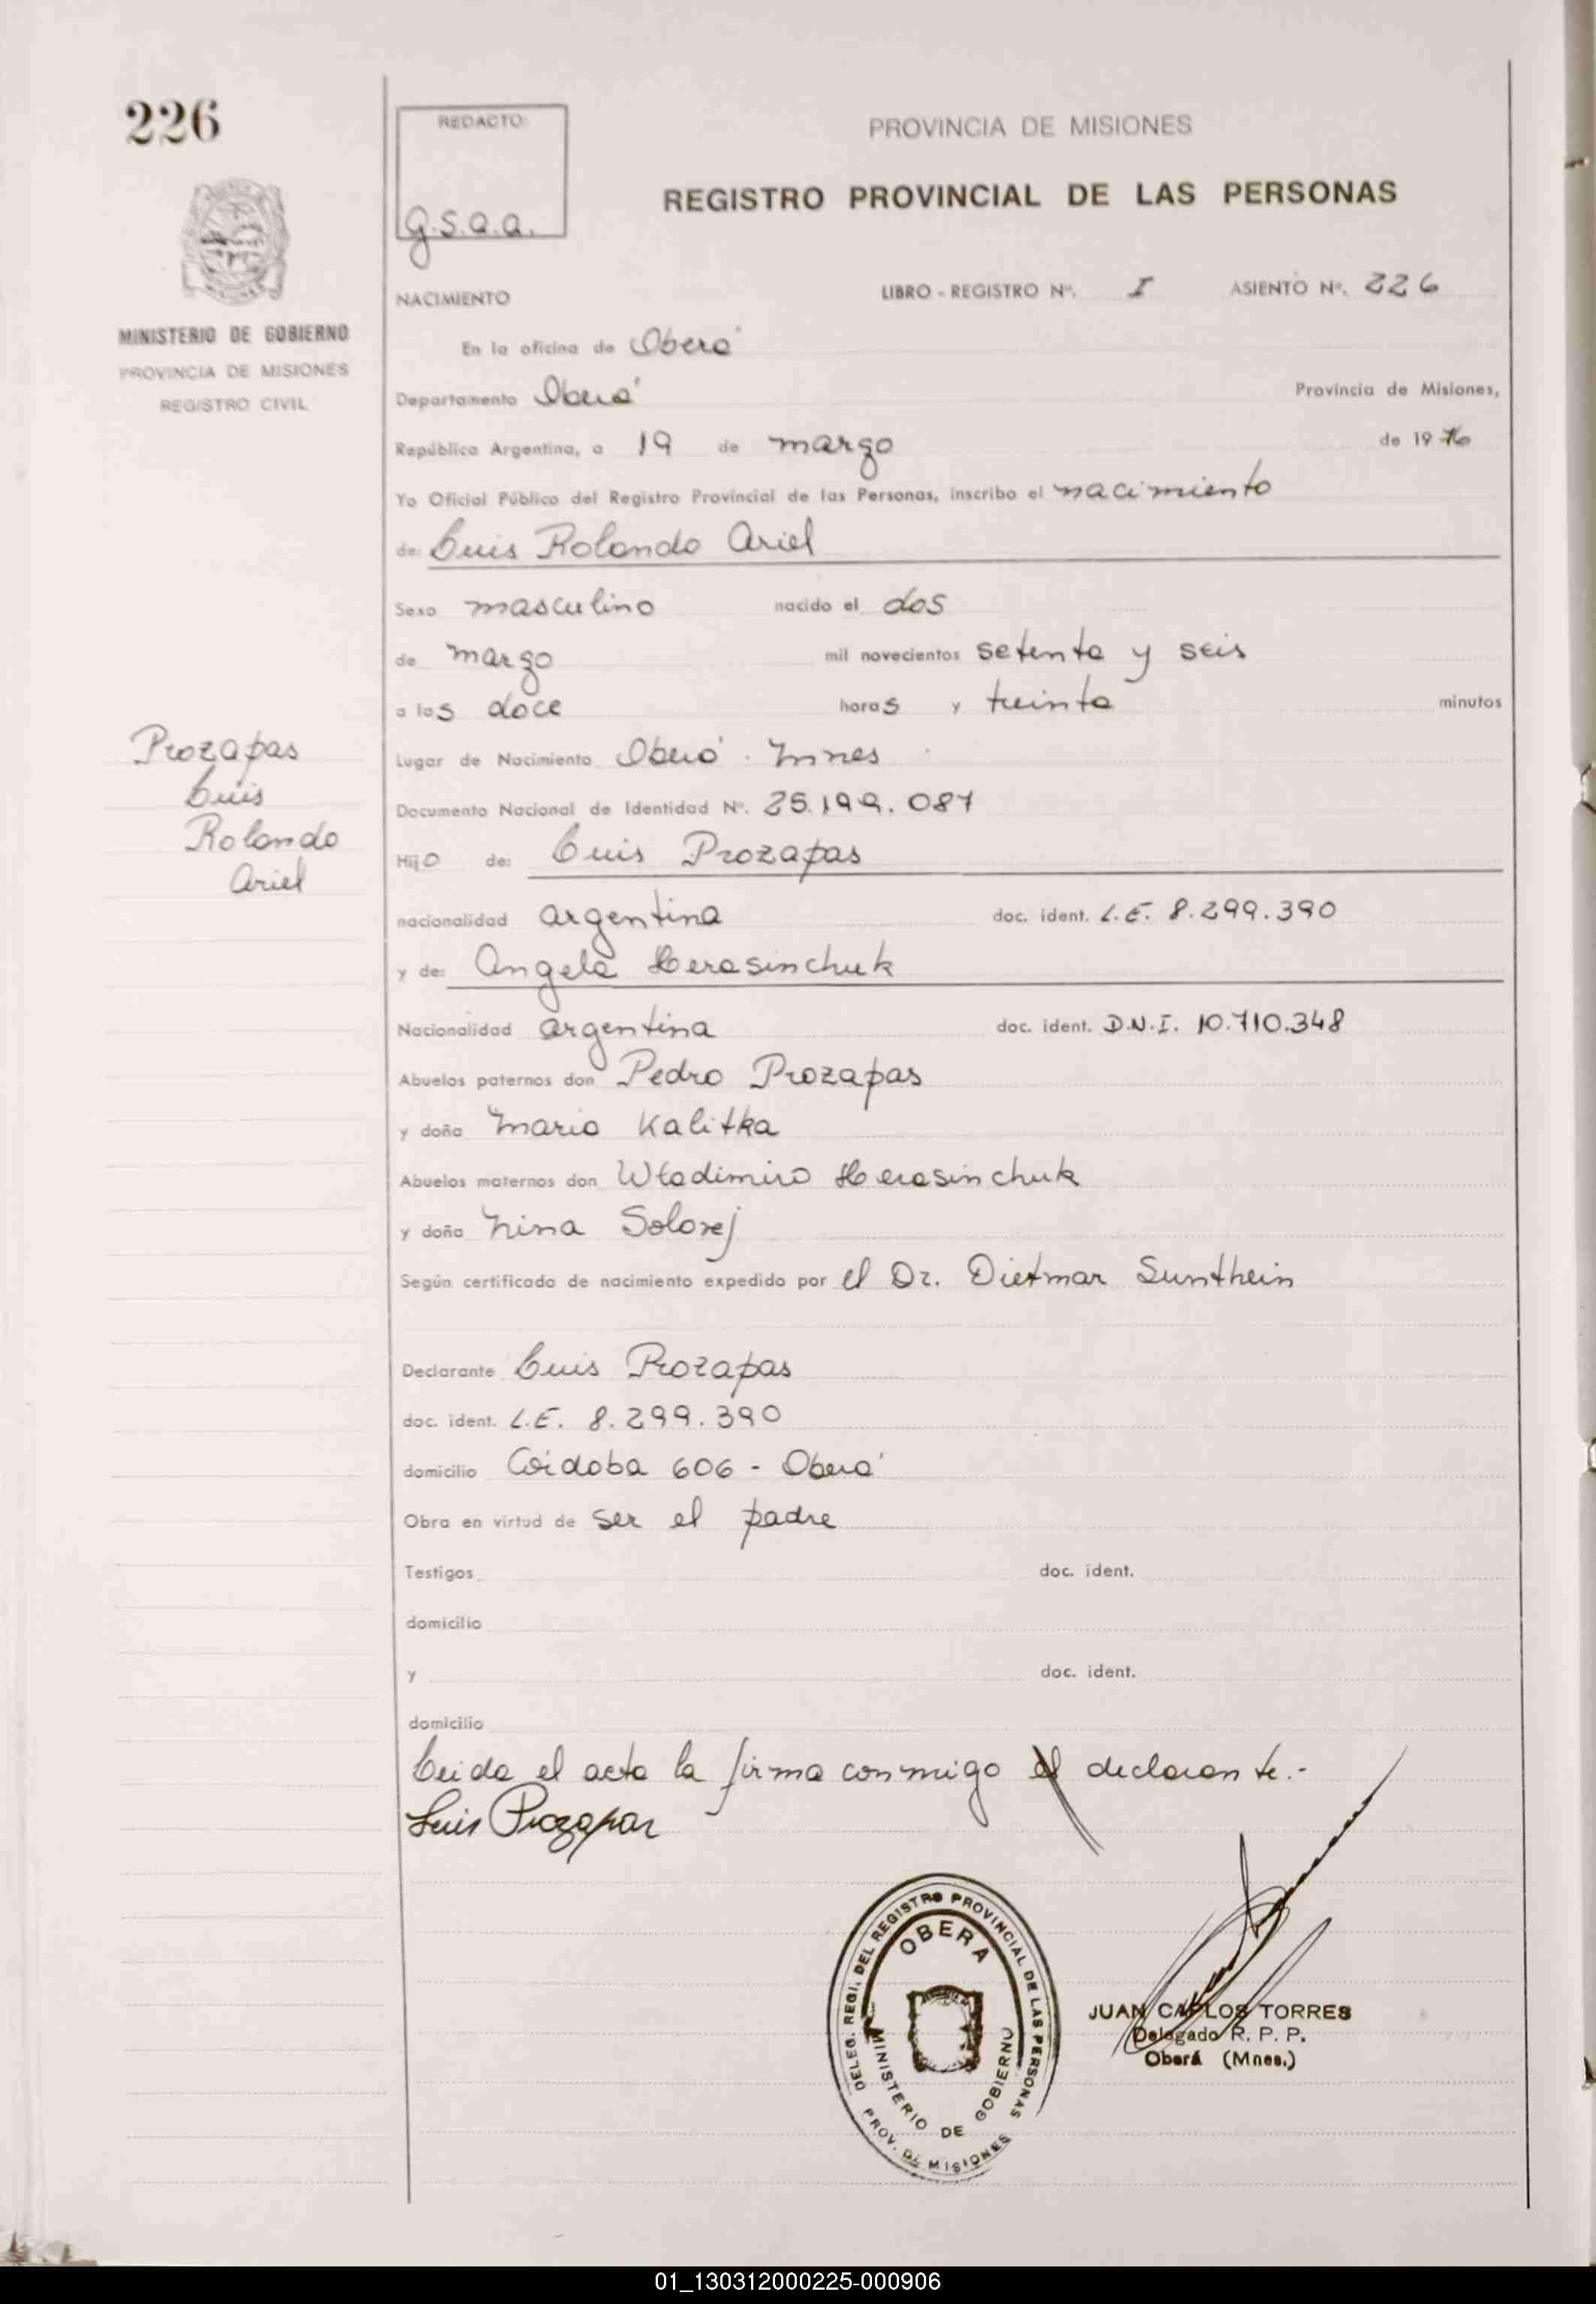 226
REDACTO:
g.s.a.a.
PROVINCIA DE MISIONES
REGISTRO PROVINCIAL DE LAS PERSONAS
MINISTERIO DE GOBIERNO
PROVINCIA DE MISIONES
REGISTRO CIVIL
NACIMIENTO
LIBRO - REGISTRO Nº. I ASIENTO Nº. 226
En la oficina de Oberá
Departamento Oberá Provincia de Misiones,
República Argentina, a 19 de marzo de 1976
Yo Oficial Público del Registro Provincial de las Personas, inscribo el nacimiento
de: Luis Rolando Ariel
Sexo masculino nacido el dos
de marzo mil novecientos setenta y seis
a las doce horas y treinta minutos
Prozapas
Luis
Rolando
Ariel
Lugar de Nacimiento Oberá. Mnes
Documento Nacional de Identidad Nº. 25.199.087
Hijo de: Luis Prozapas
nacionalidad argentina doc. ident. L.E. 8.299.390
y de: Angela Herasinchuk
Nacionalidad argentina doc. ident. D.N.I. 10.710.348
Abuelos paternos don Pedro Prozapas
y doña Maria Kalitka
Abuelos maternos don Wladimiro Herasinchuk
y doña Nina Solovej
Según certificado de nacimiento expedido por el Dr. Dietmar Sunthein
Declarante Luis Prozapas
doc. ident. L.E. 8.299.390
domicilio Córdoba 606 - Oberá
Obra en virtud de ser el padre
Testigos doc. ident.
domicilio
y doc. ident.
domicilio
Leida el acta la firma conmigo el declarante.-
Luis Prozapas
DELEG. REGI. DEL REGISTRO PROVINCIAL DE LAS PERSONAS
OBERA
MINISTERIO DE GOBIERNO
PROV. DE MISIONES
JUAN CARLOS TORRES
Delegado R. P. P.
Oberá (Mnes.)
01_130312000225-000906